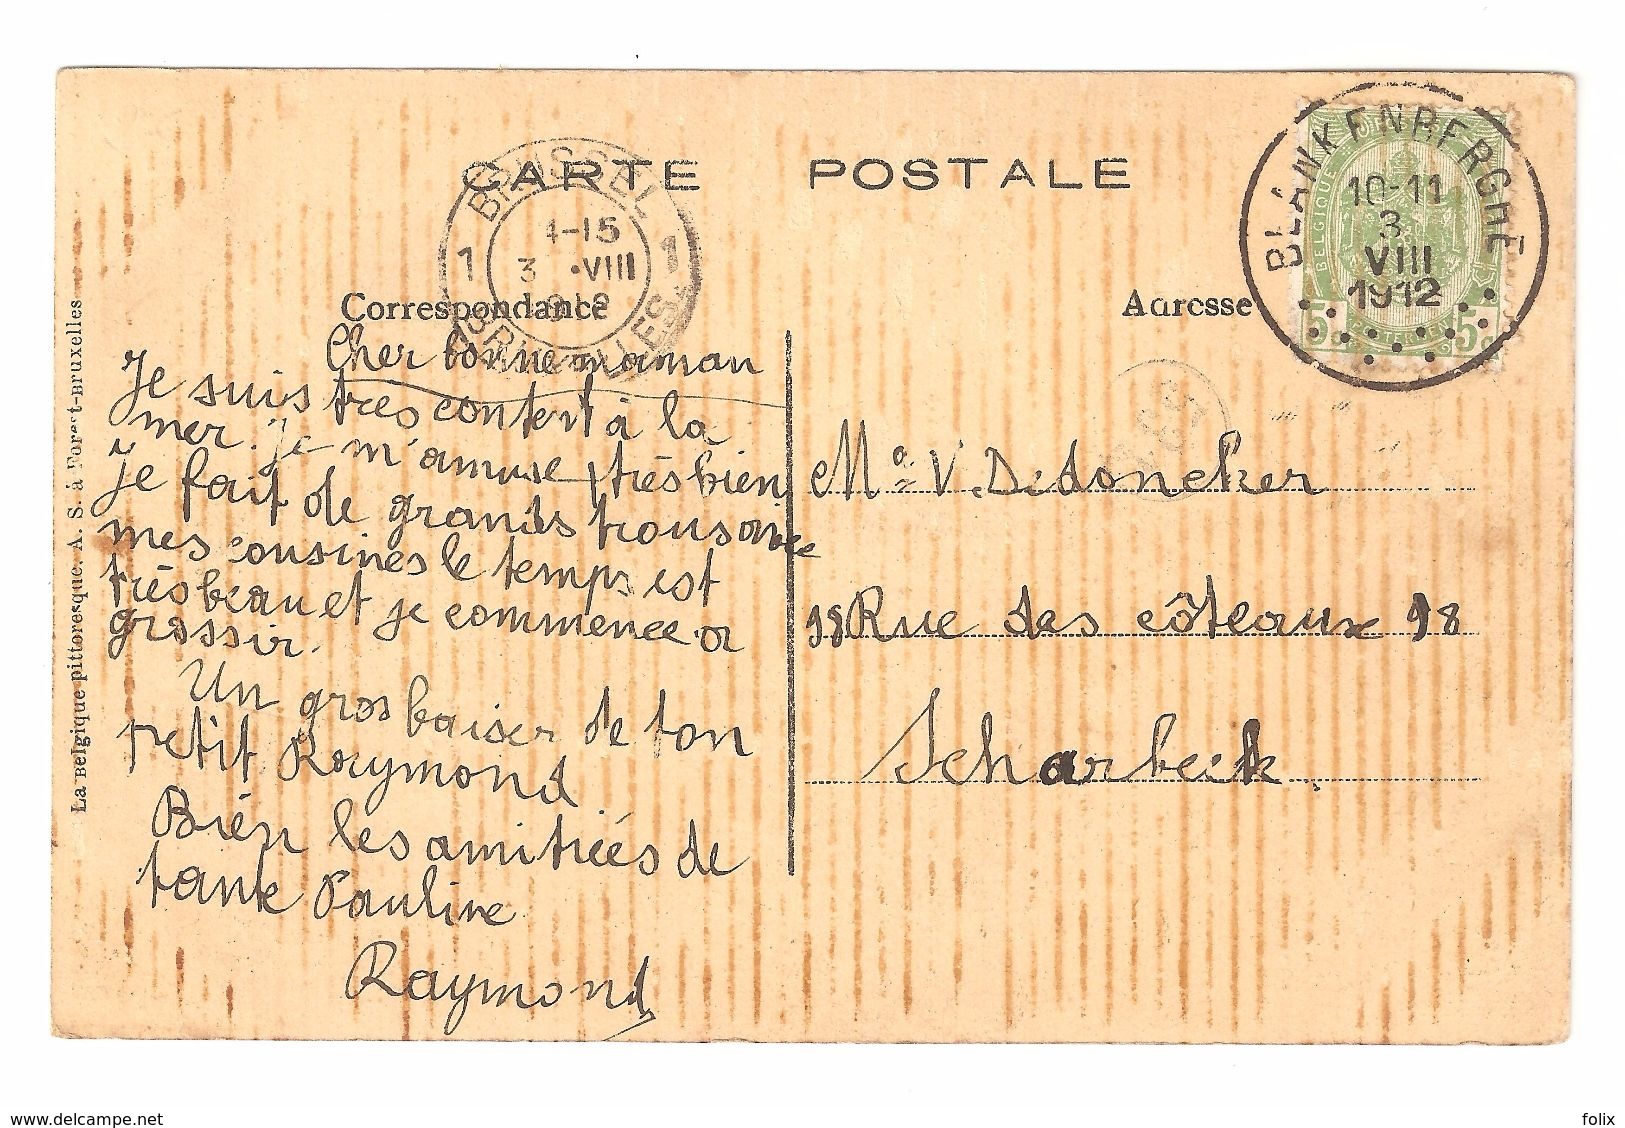 CARTE POSTALE
BRUSSEL
1 4-15 1
3 VIII
BRUXELLES
BLANKENBERGHE
10-11
3
VIII
1912
BELGIQUE
5 5
Correspondance
Adresse
Cher bonne maman
Je suis tres content à la
mer. Je m'amuse très bien
je fait de grands trous avec
mes cousines le temps est
très beau et je commence a
grossir.
Un gros baiser de ton
petit Raymond
Bien les amitiées de
tante Pauline
Raymond
Me V. Dedoncker
98 Rue des côteaux 98
Scharbeek
La Belgique pittoresque. A. S. à Forest-Bruxelles
www.delcampe.net
folix